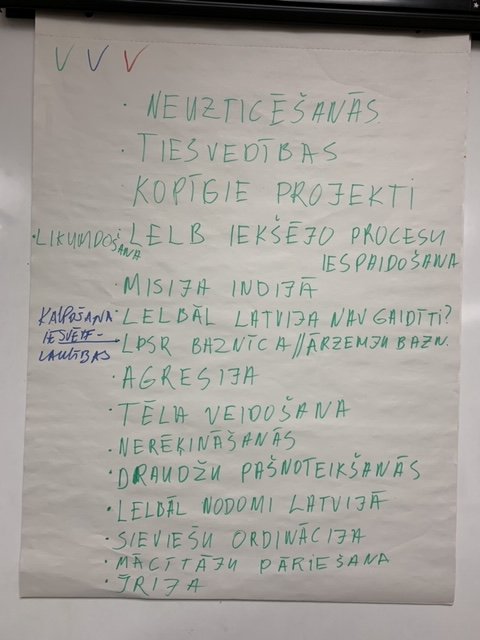 V V V
· NEUZTICĒŠANĀS
· TIESVEDĪBAS
KOPĪGIE PROJEKTI
· LIKUMDOŠANA
LELB IEKŠĒJO PROCESU
IESPAIDOŠANA
· MISIJA INDIJĀ
KALPOŠANA
· LELBĀL LATVIJA NAV GAIDĪTI?
LAULĪBAS
· LPSR BAZNĪCA//ĀRZEMJU BAZN.
· AGRESIJA
· TĒLA VEIDOŠANA
· NERĒĶINĀŠANĀS
· DRAUDŽU PAŠNOTEIKŠANĀS
· LELBĀL NODOMI LATVIJĀ
· SIEVIEŠU ORDINĀCIJA
· MĀCĪTĀJU PĀRIEŠANA
· ĪRIJA